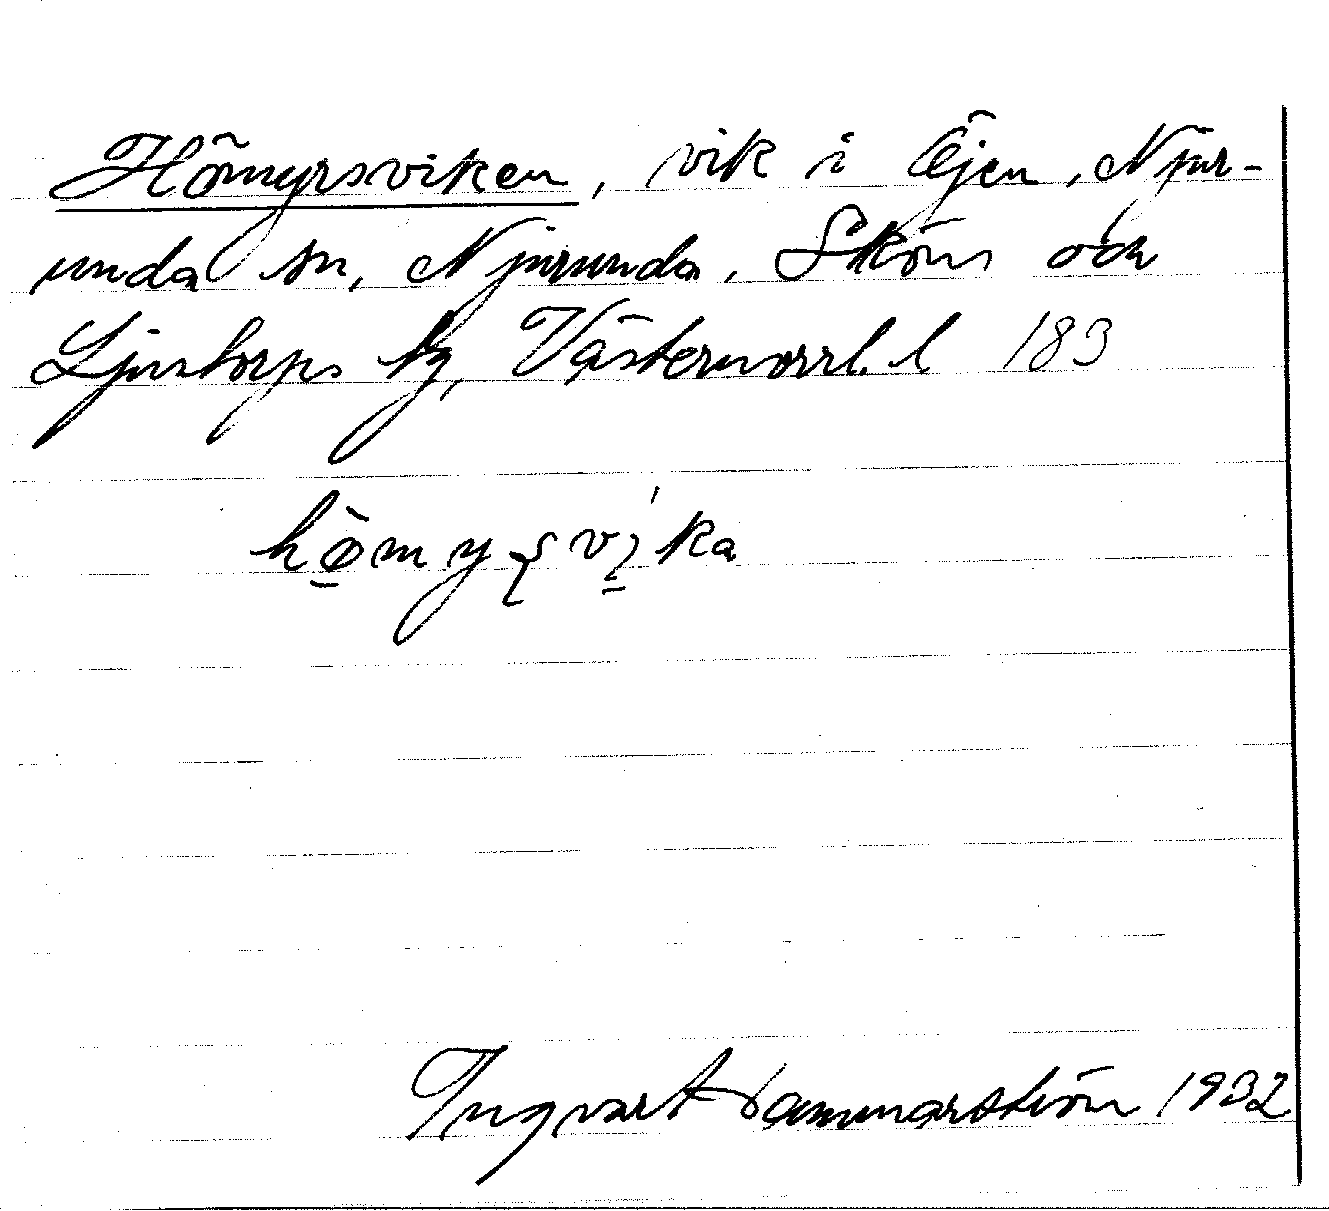 Hömyrsviken, vik i Öjen, Njur-
unda sn, Njurunda, Sköns och
Ljustorps tg, Västernorrl. l 183
hø̀myʂvi̱ka
Ingvart Hammarström 1932